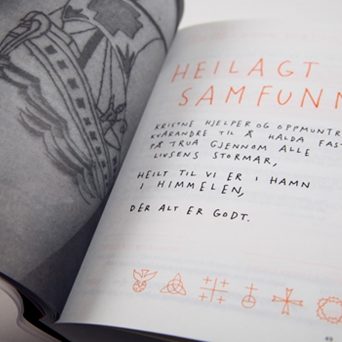 HEILAGT
SAMFUNN
KRISTNE HJELPER OG OPPMUNTR
KVARANDRE TIL Å HALDA FAST
PÅ TRUA GJENNOM ALLE
LIVSENS STORMAR,
HEILT TIL VI ER I HAMN
I HIMMELEN,
DER ALT ER GODT.